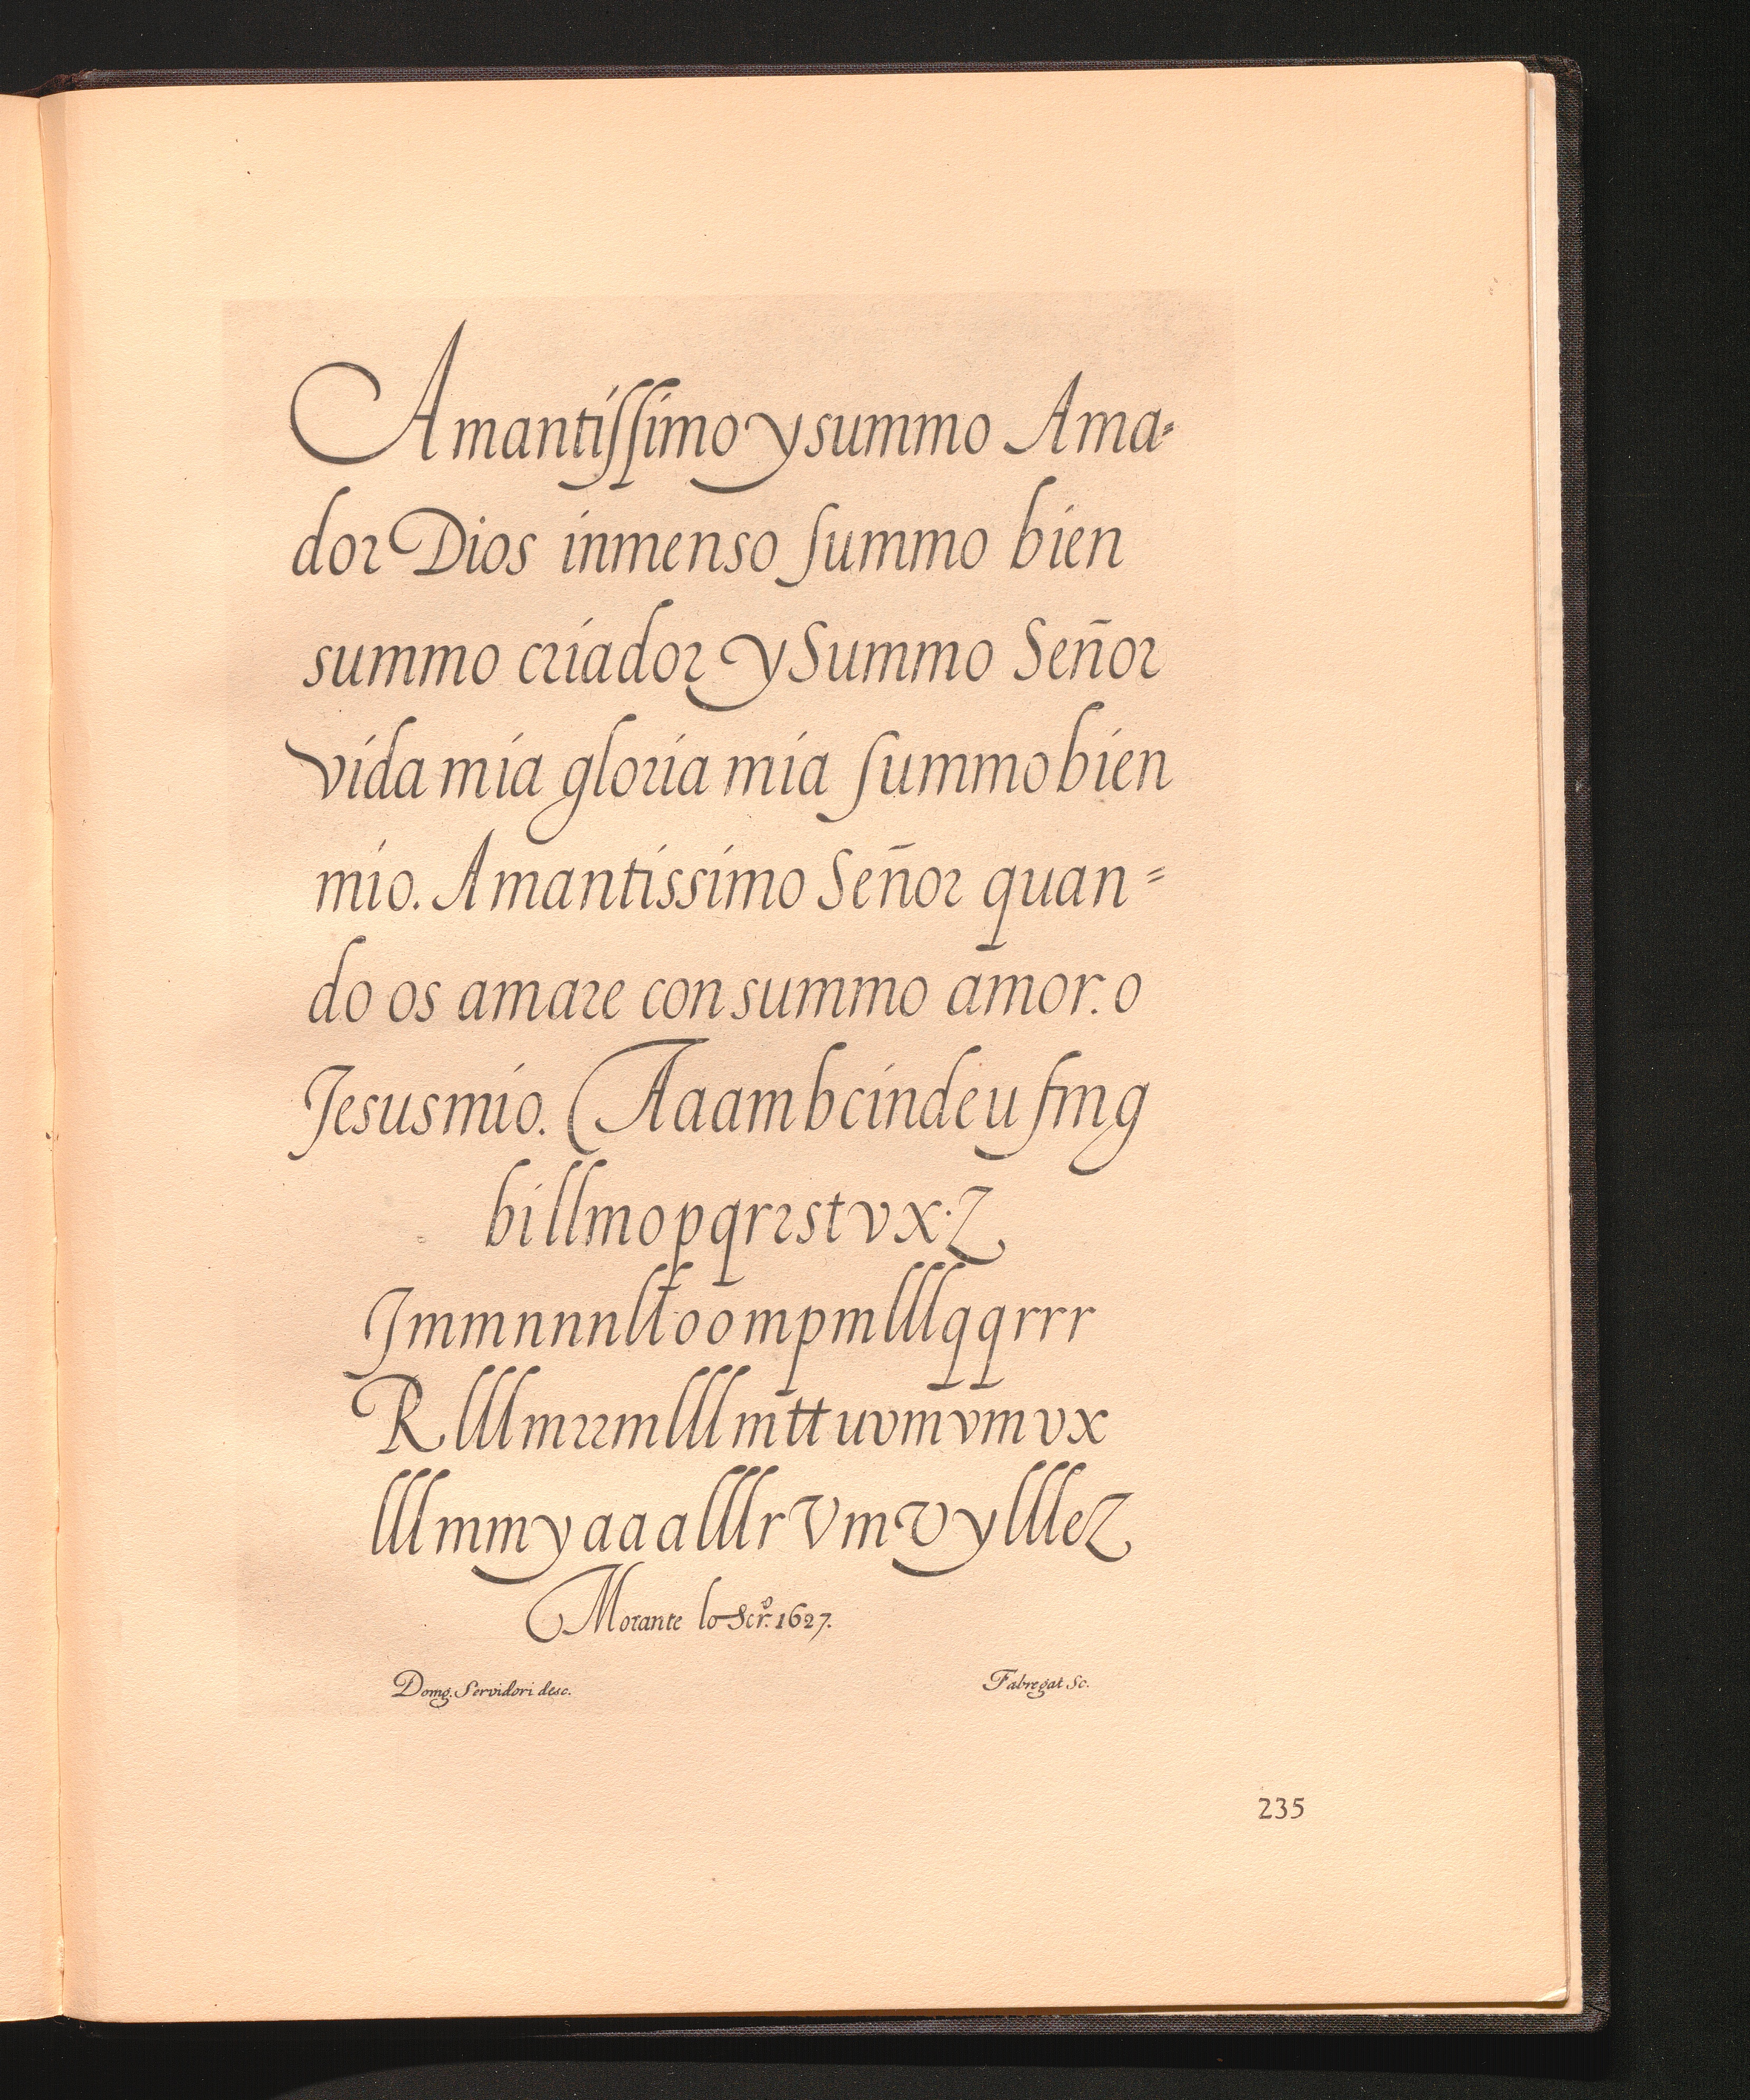 Amantiſſimo y summo Ama=
dor Dios inmenso ſummo bien
summo criador y Summo Señor
vida mia gloria mia ſummo bien
mio. Amantissimo Señor quan=
do os amare con summo amor. o
Jesus mio. (Aaambcindeu fmg
billmopqrrstvx.Z
Jmmnnnlloompmlllqqrrr
Rlllmrrmlllmttuvmvmvx
lllmmyaaalllrVmVyllleZ
Morante lo Scrº. 1627.
Domg. Servidori desc. Fabregat Sc.
235